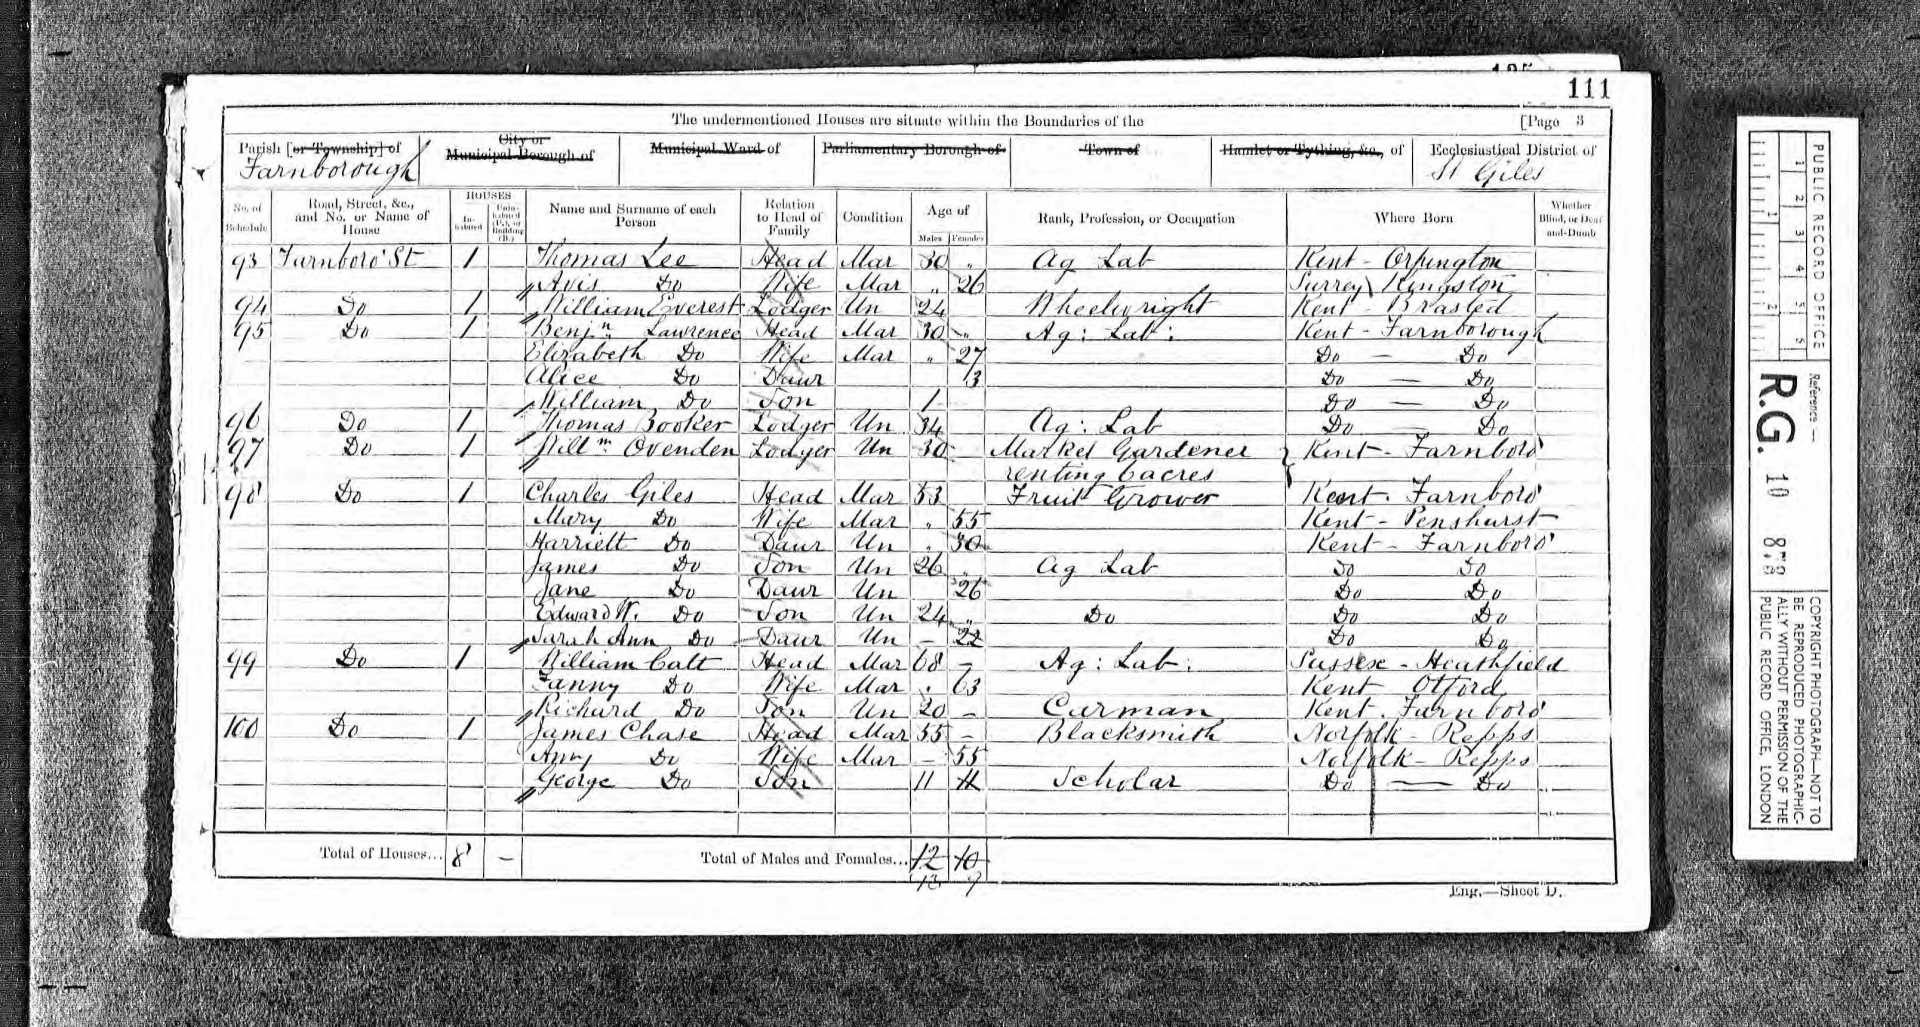 111
The undermentioned Houses are situate within the Boundaries of the [Page 3
Parish [or Township] of Farnborough City or Municipal Borough of Municipal Ward of Parliamentary Borough of Town of Hamlet or Tything, &c., of Ecclesiastical District of St Giles
No. of Schedule Road, Street, &c., and No. or Name of House HOUSES Inhabited Uninhabited (U.), or Building (B.) Name and Surname of each Person Relation to Head of Family Condition Age of Males Females Rank, Profession, or Occupation Where Born Whether Blind, or Deaf-and-Dumb
93 Farnboro' St 1 Thomas Lee Head Mar 30 „ Ag Lab Kent - Orpington
Avis Do Wife Mar „ 26 Surrey Kingston
94 Do 1 William Everest Lodger Un 24 Wheelwright Kent - Brasted
95 Do 1 Benjn Lawrence Head Mar 30 „ Ag: Lab: Kent - Farnborough
Elizabeth Do Wife Mar „ 27 Do — Do
Alice Do Daur 3 Do — Do
William Do Son 1 Do — Do
96 Do 1 Thomas Booker Lodger Un 34 Ag: Lab Do — Do
97 Do 1 Willm Ovenden Lodger Un 30 Market Gardener Kent - Farnboro'
renting 6 acres
98 Do 1 Charles Giles Head Mar 53 Fruit Grower Kent - Farnboro'
Mary Do Wife Mar „ 55 Kent - Penshurst
Harriett Do Daur Un „ 30 Kent - Farnboro'
James Do Son Un 26 „ Ag Lab Do Do
Jane Do Daur Un 26 Do Do
Edward W. Do Son Un 24 „ Do Do Do
Sarah Ann Do Daur Un - 22 Do Do
99 Do 1 William Catt Head Mar 68 - Ag: Lab: Sussex - Heathfield
Fanny Do Wife Mar . 63 Kent Otford
Richard Do Son Un 20 - Carman Kent. Farnboro
100 Do 1 James Chase Head Mar 55 - Blacksmith Norfolk - Repps
Ann Do Wife Mar - 55 Norfolk - Repps
George Do Son 11 11 Scholar Do — Do
Total of Houses... 8 - Total of Males and Females... 12 10
13 9
Eng.—Sheet D.
PUBLIC RECORD OFFICE
1 2 3 4 5 6
1 2
Reference:—
R.G. 10 878
COPYRIGHT PHOTOGRAPH—NOT TO
BE REPRODUCED PHOTOGRAPHIC-
ALLY WITHOUT PERMISSION OF THE
PUBLIC RECORD OFFICE, LONDON